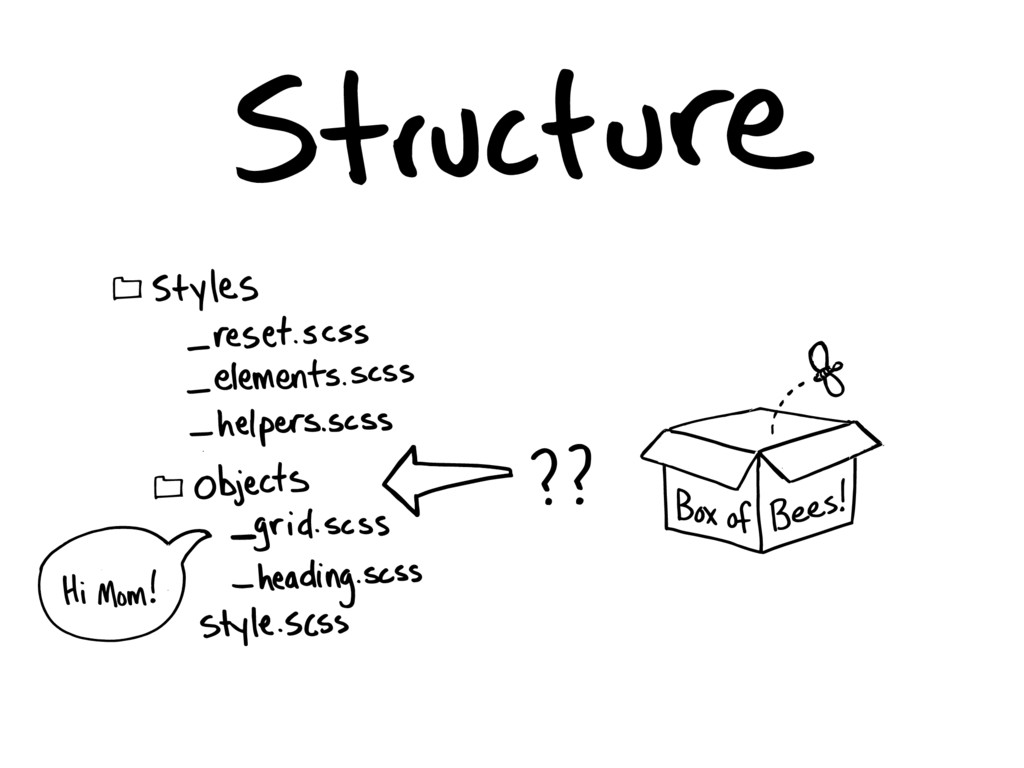 Structure
styles
_reset.scss
_elements.scss
_helpers.scss
objects
??
_grid.scss
_heading.scss
style.scss
Hi Mom!
Box of Bees!